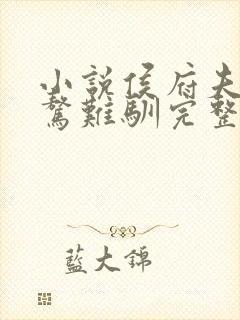 小說侯府夫
驁難馴完整
藍大錦